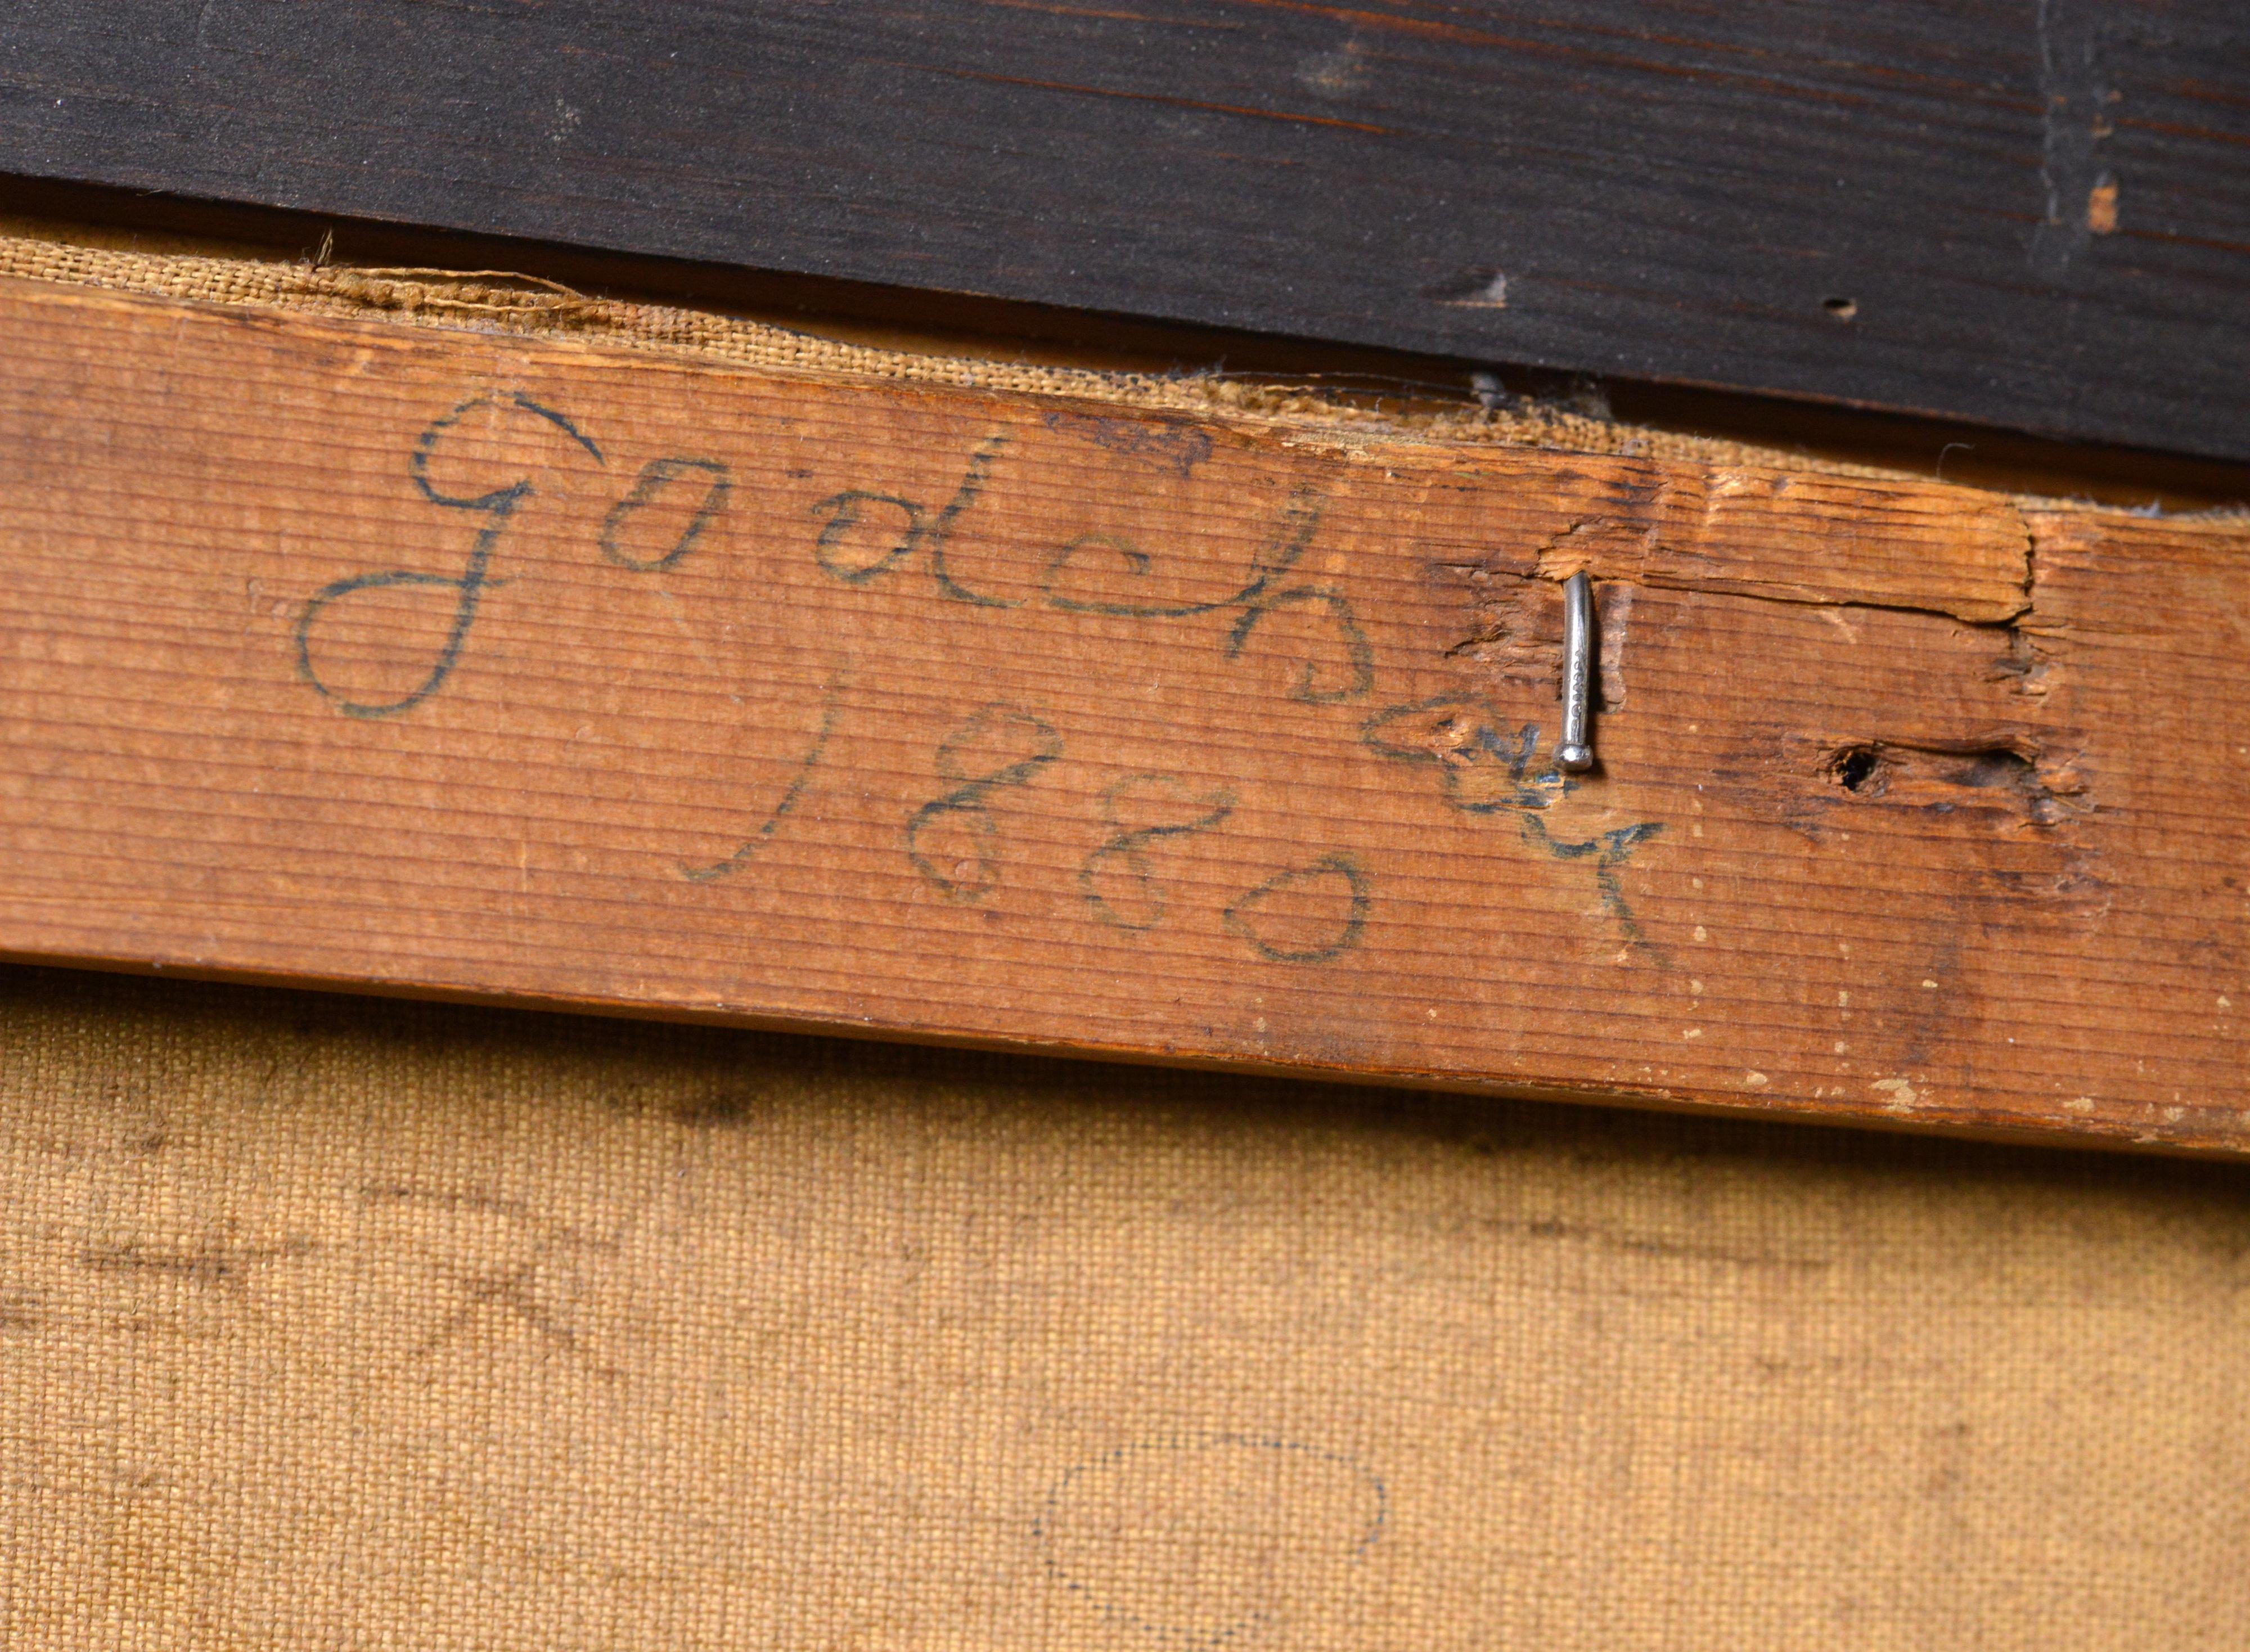 Godchaux
1880